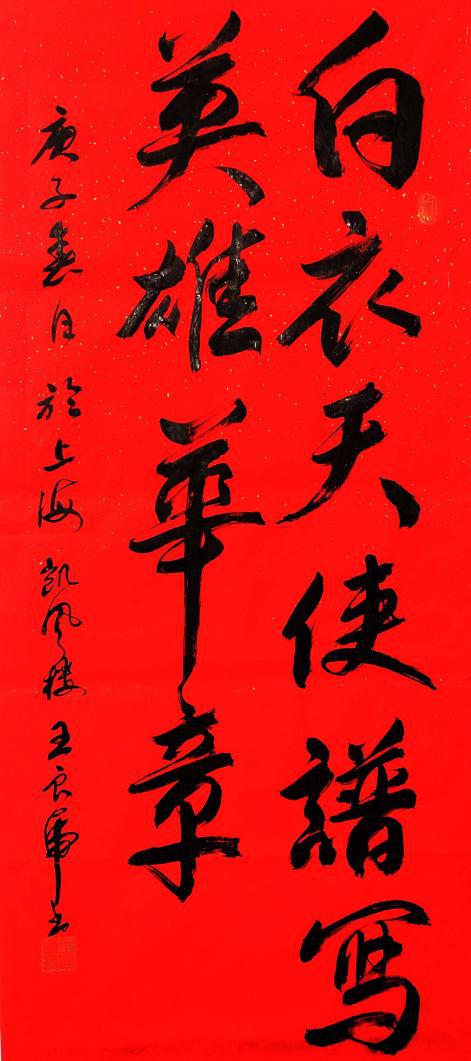 白衣天使譜寫
英雄華章
庚子春日於上海凱風樓王良虎書